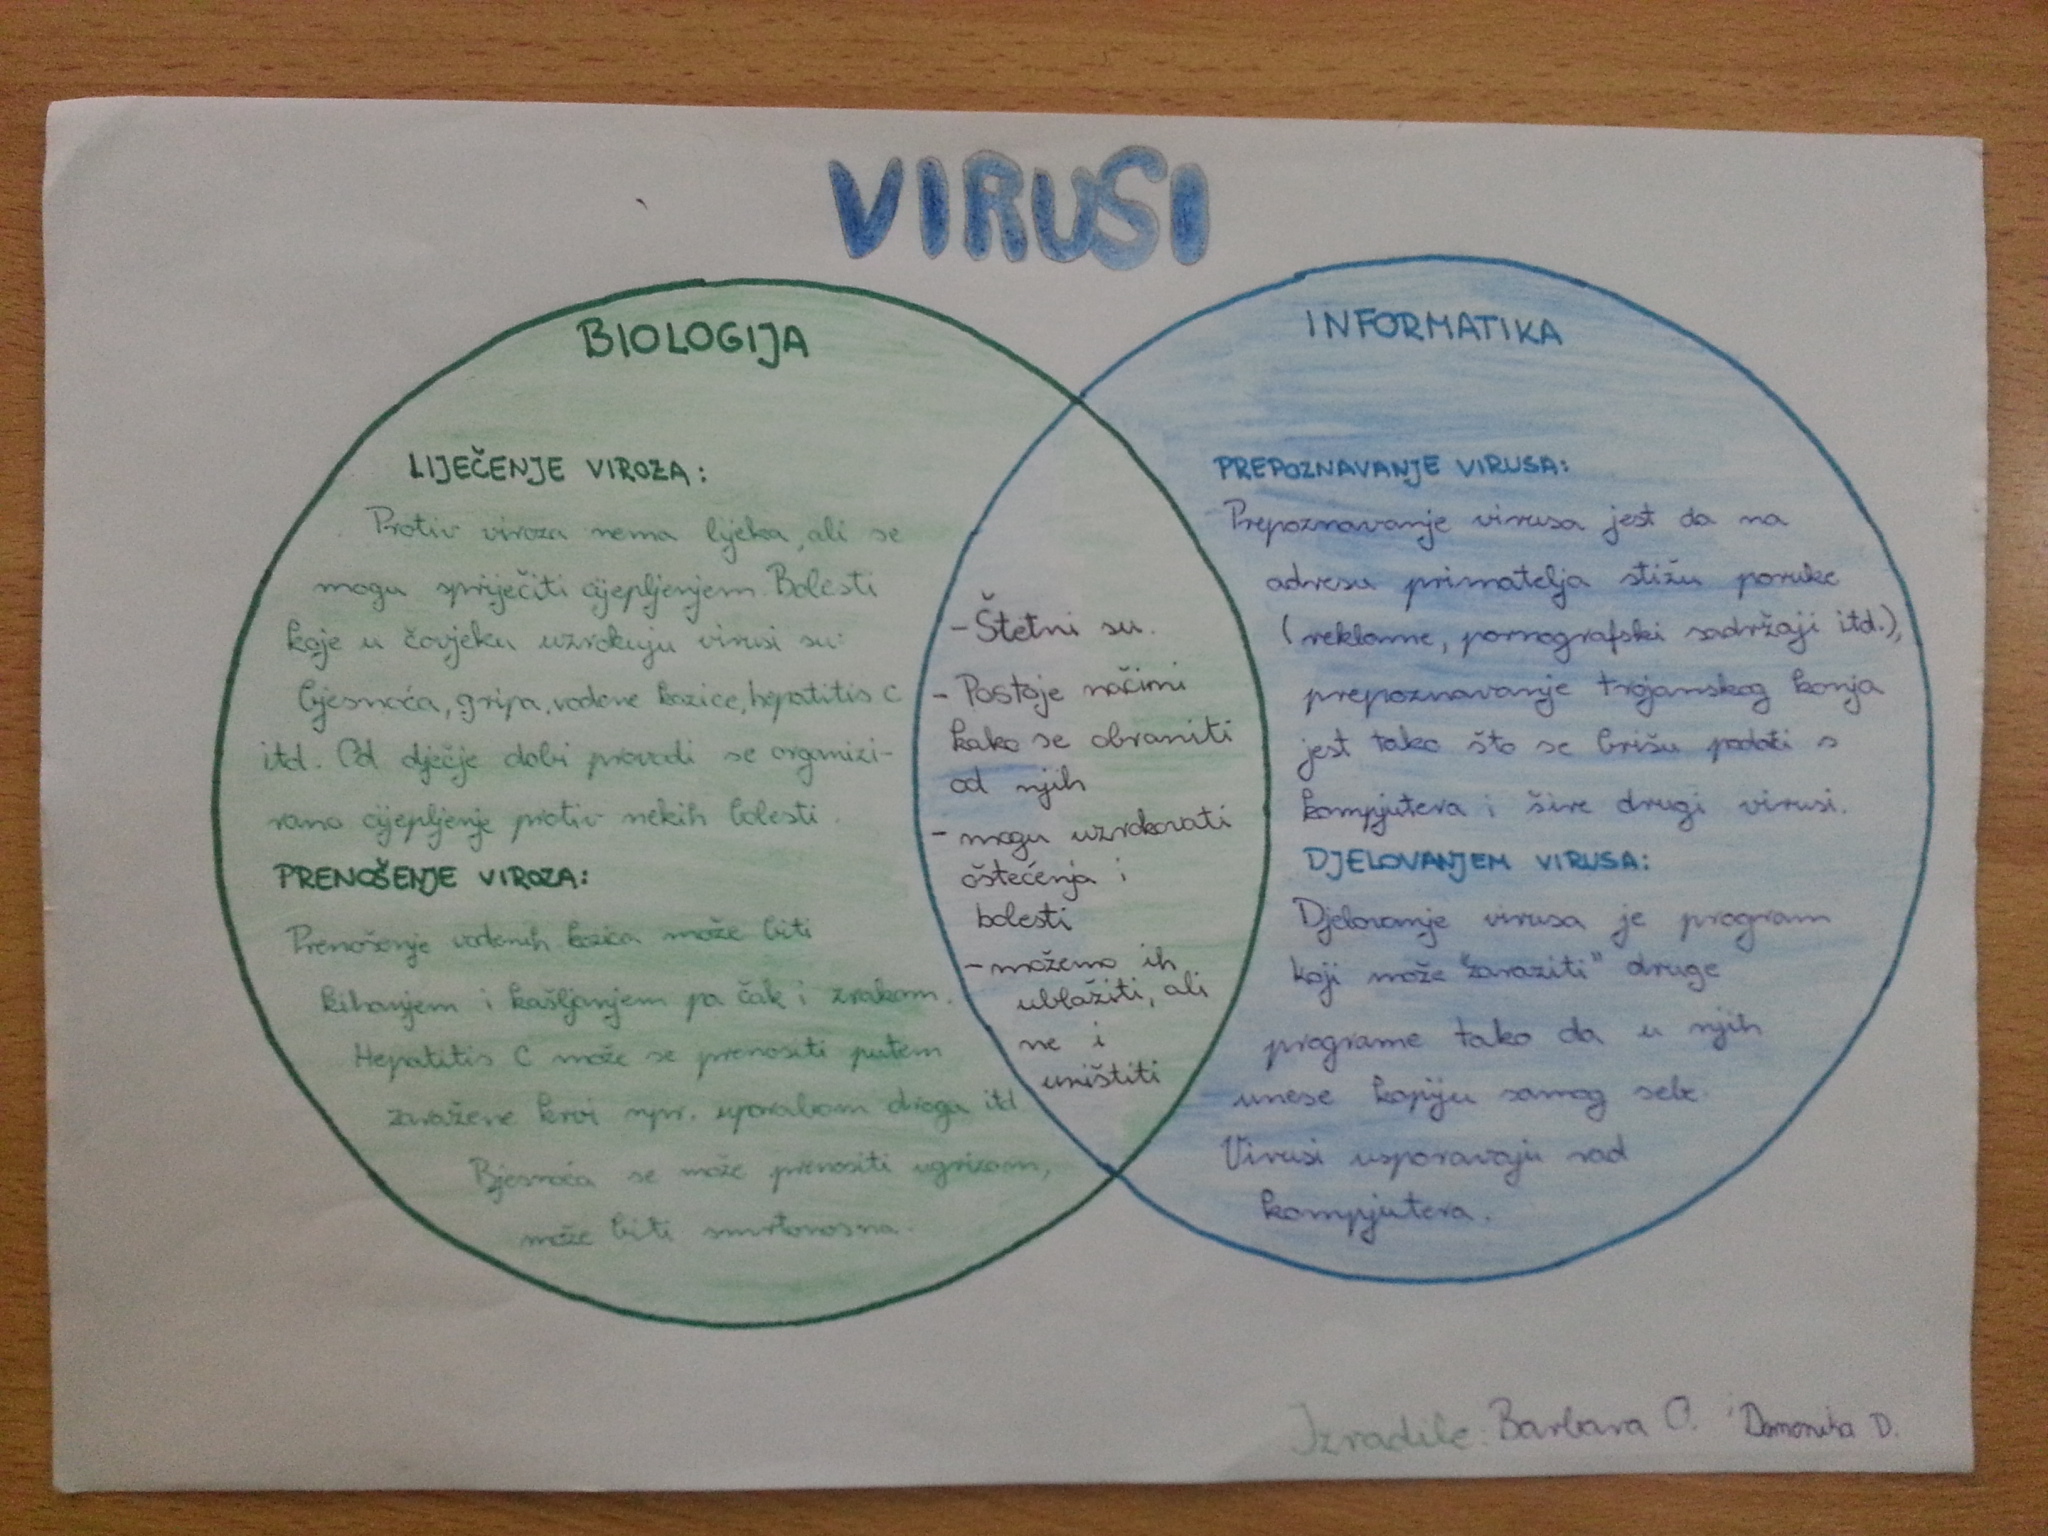 VIRUSI
BIOLOGIJA
LIJEČENJE VIROZA:
Protiv viroza nema lijeka, ali se
mogu spriječiti cijepljenjem. Bolesti
koje u čovjeku uzrokuju virusi su:
bjesnoća, gripa, vodene kozice, hepatitis C
itd. Od dječje dobi provodi se organizi-
rano cijepljenje protiv nekih bolesti.
PRENOŠENJE VIROZA:
Prenošenje vodenih kozica može biti
kihanjem i kašljanjem pa čak i zrakom.
Hepatitis C može se prenositi putem
zaražene krvi npr. uporabom droga itd
Bjesnoća se može prenositi ugrizom,
može biti smrtonosna.
- Štetni su.
- Postoje načini
kako se obraniti
od njih
- mogu uzrokovati
oštećenja i
bolesti
- možemo ih
ublažiti, ali
ne i
uništiti
INFORMATIKA
PREPOZNAVANJE VIRUSA:
Prepoznavanje virusa jest da na
adresu primatelja stižu poruke
(reklame, pornografski sadržaji itd.),
prepoznavanje trojanskog konja
jest tako što se brišu podati s
kompjutera i šire drugi virusi.
DJELOVANJEM VIRUSA:
Djelovanje virusa je program
koji može "zaraziti" druge
programe tako da u njih
unese kopiju samog sebe.
Virusi usporavaju rad
kompjutera.
Izradile: Barbara O. i Domonika D.